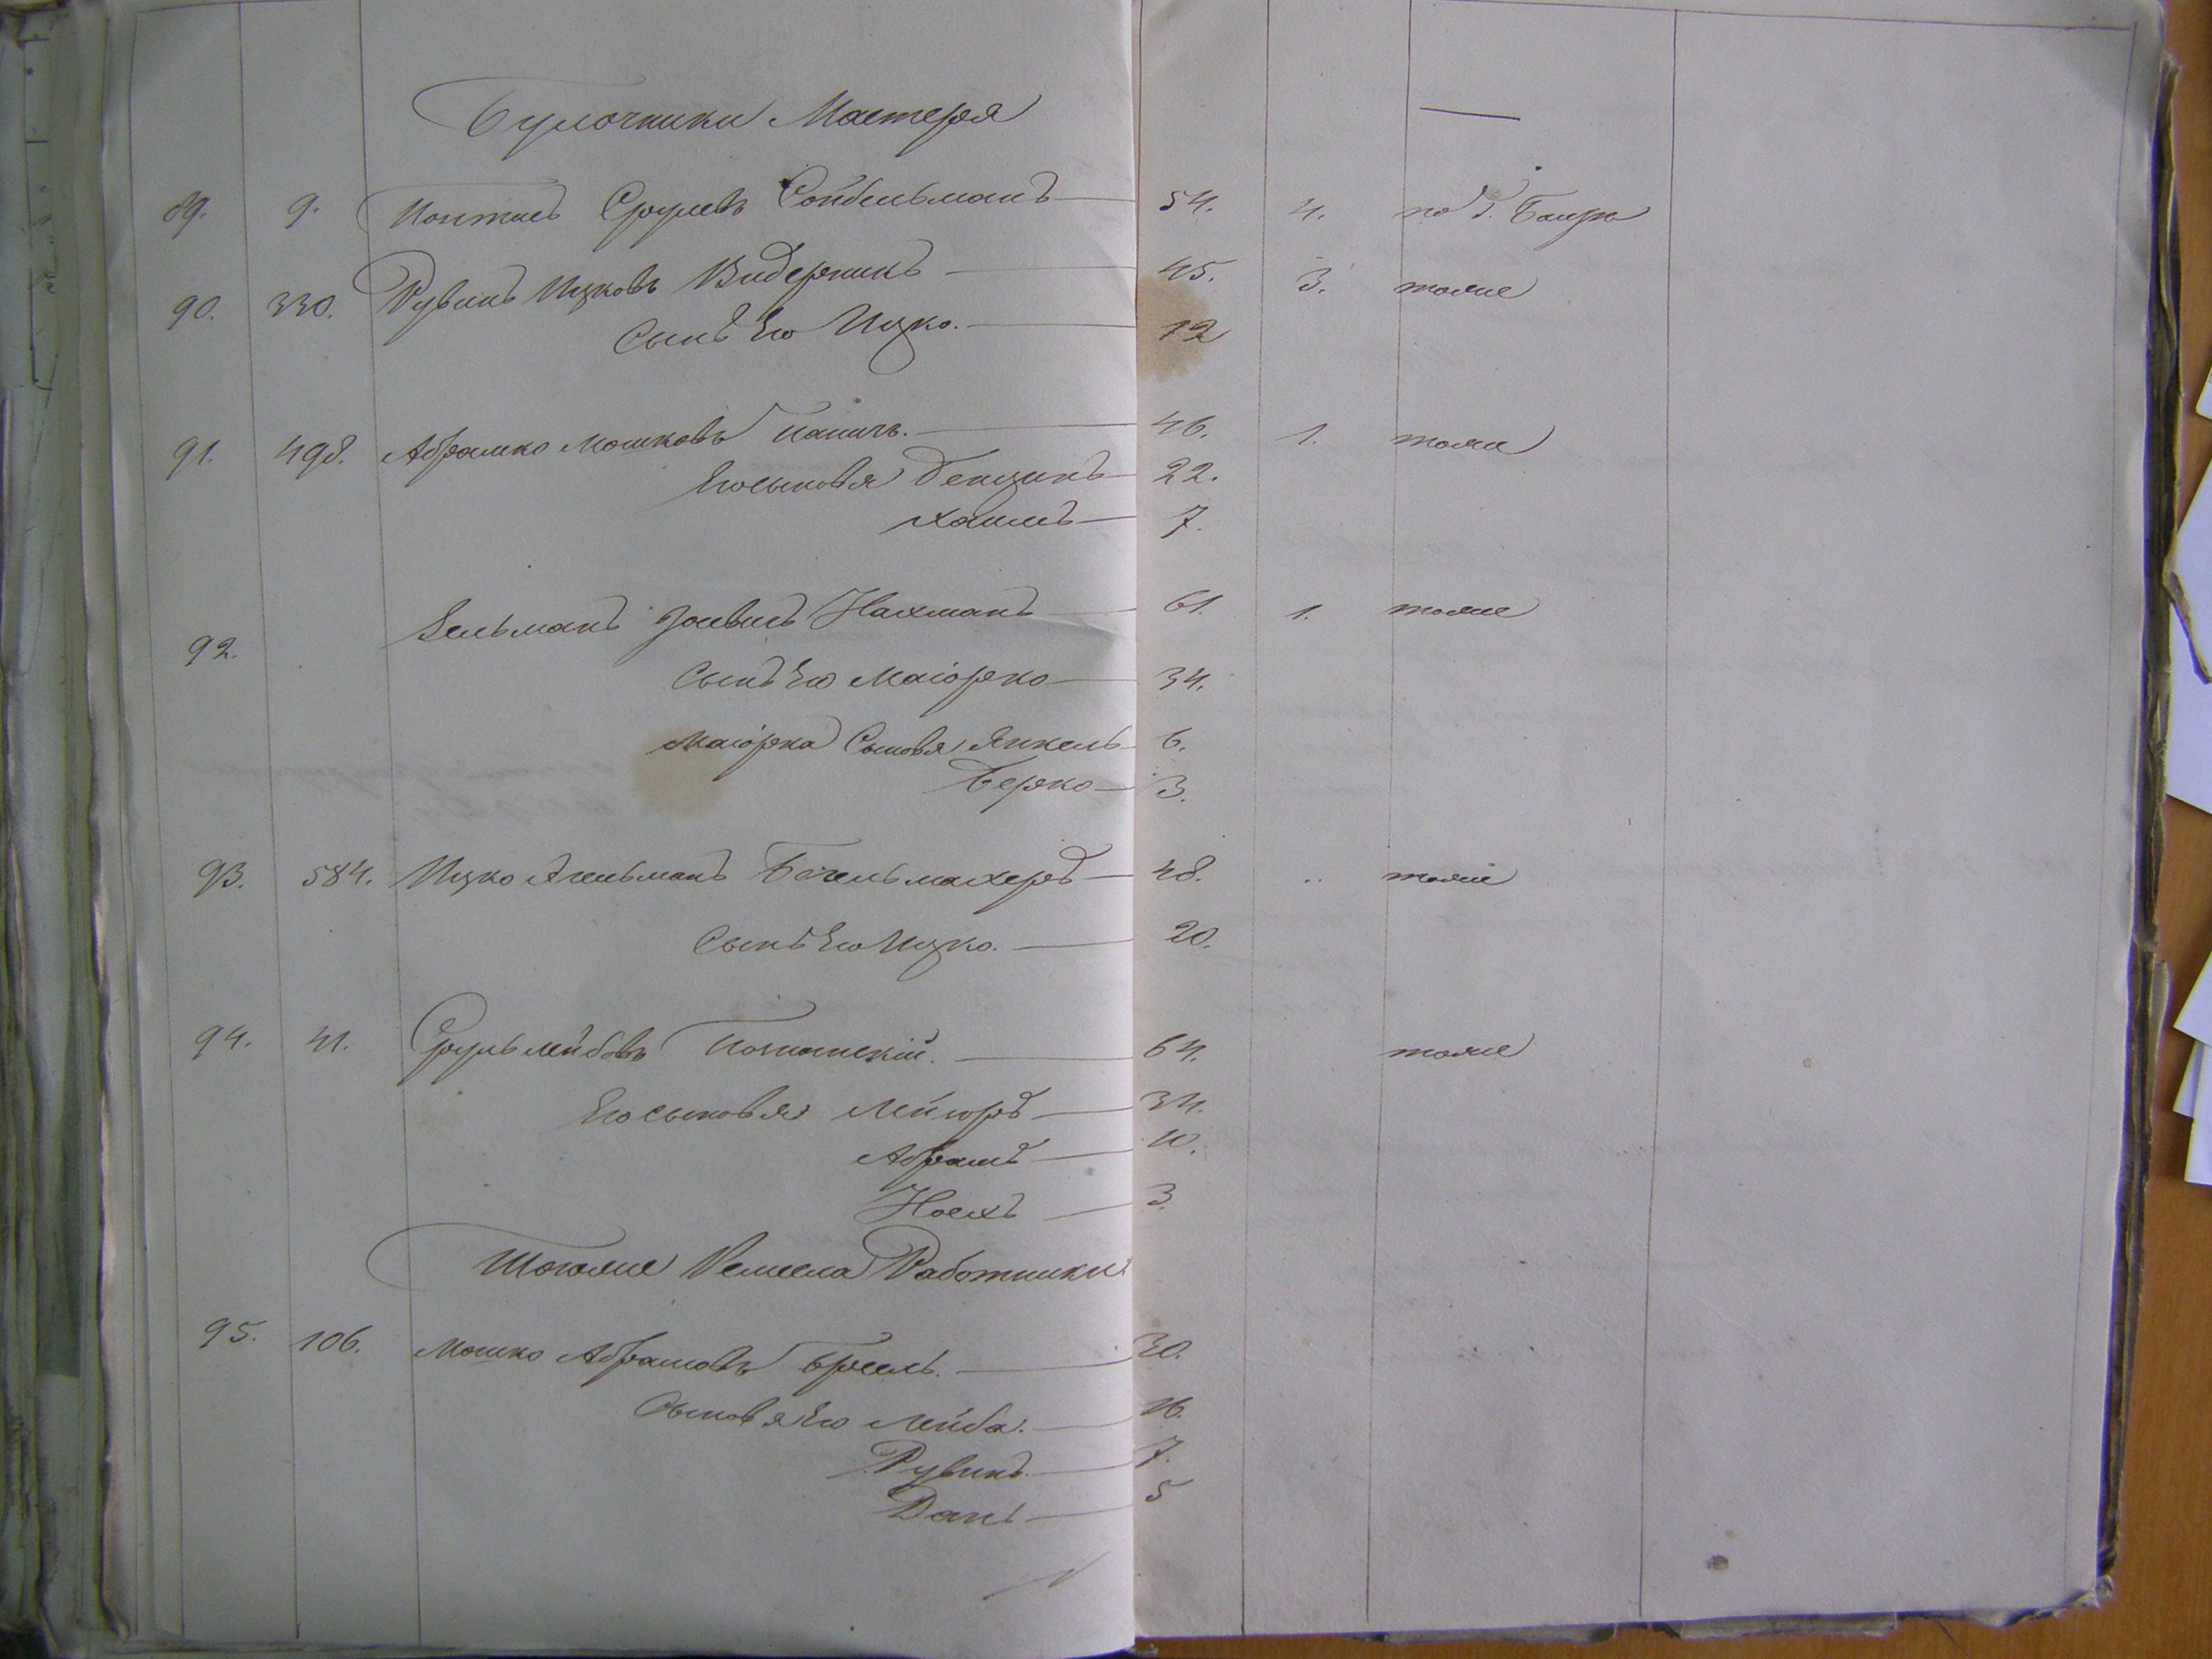 Булочники Мастеря
89. 9. Срулевъ Сойбельманъ 54. 4. по г.
90. 330. Рувинъ Ицковъ Видерникъ 45. 3. тоже
Сынъ Его Ицко. 12
91. 498. Абрамко Мошковъ 46. 1. тоже
Его сыновя Бенцинъ 22.
Хаимъ 7.
92. Зельманъ Нахманъ 61. 1. тоже
Сынъ Его Маіорко 34.
Маіорка Сыновя Янкель 6.
Берко 3.
93. 584. Ицко Бечельмахеръ 48. „ тоже
Сынъ Его Ицко. 20.
94. 41. Сруль Лейбовъ 64. тоже
Его сыновя Мейюръ 34.
Абрамъ 10.
Ноехъ 3.
Тогоже Ремесла Работники
95. 106. Мошко Абрамовъ 30.
Сыновя Его Лейба. 16.
Рувинъ. 7.
Данъ 5